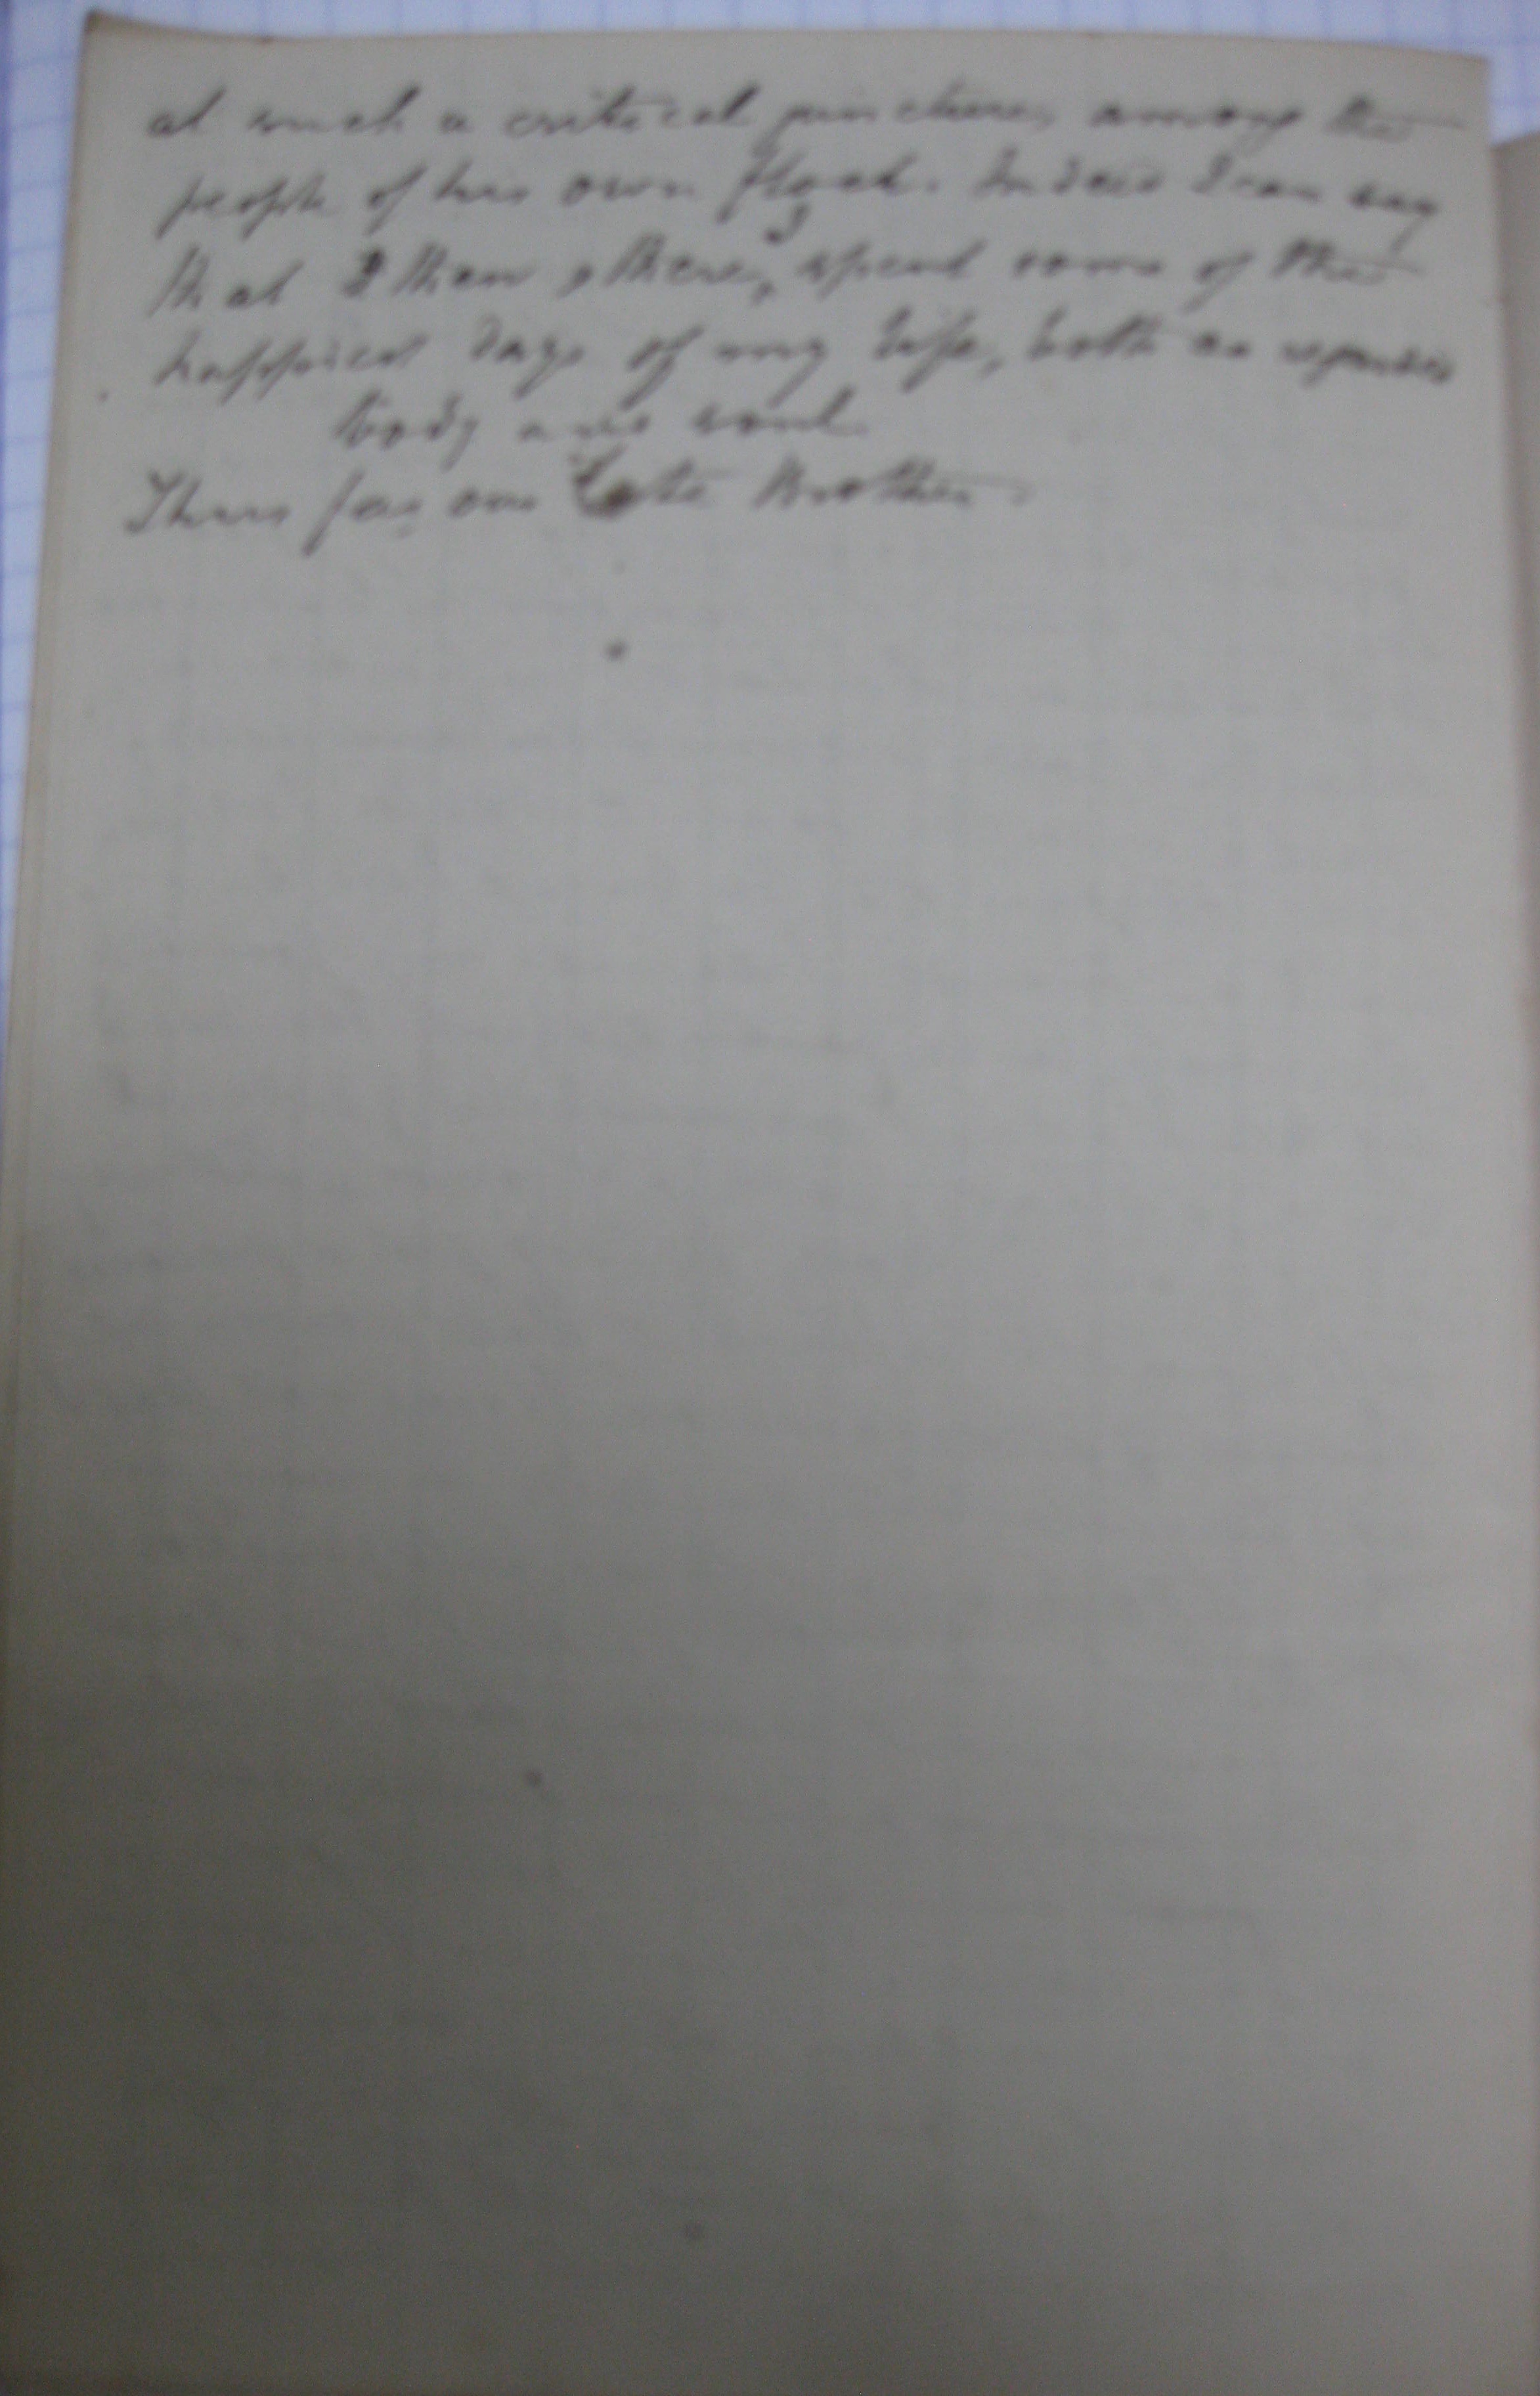 at such a critical juncture, among the
people of his own flock. Indeed I can say
that I then & there, I spent some of the
happiest days of my life, both as regards
body and soul.
Thus far our late Brother.